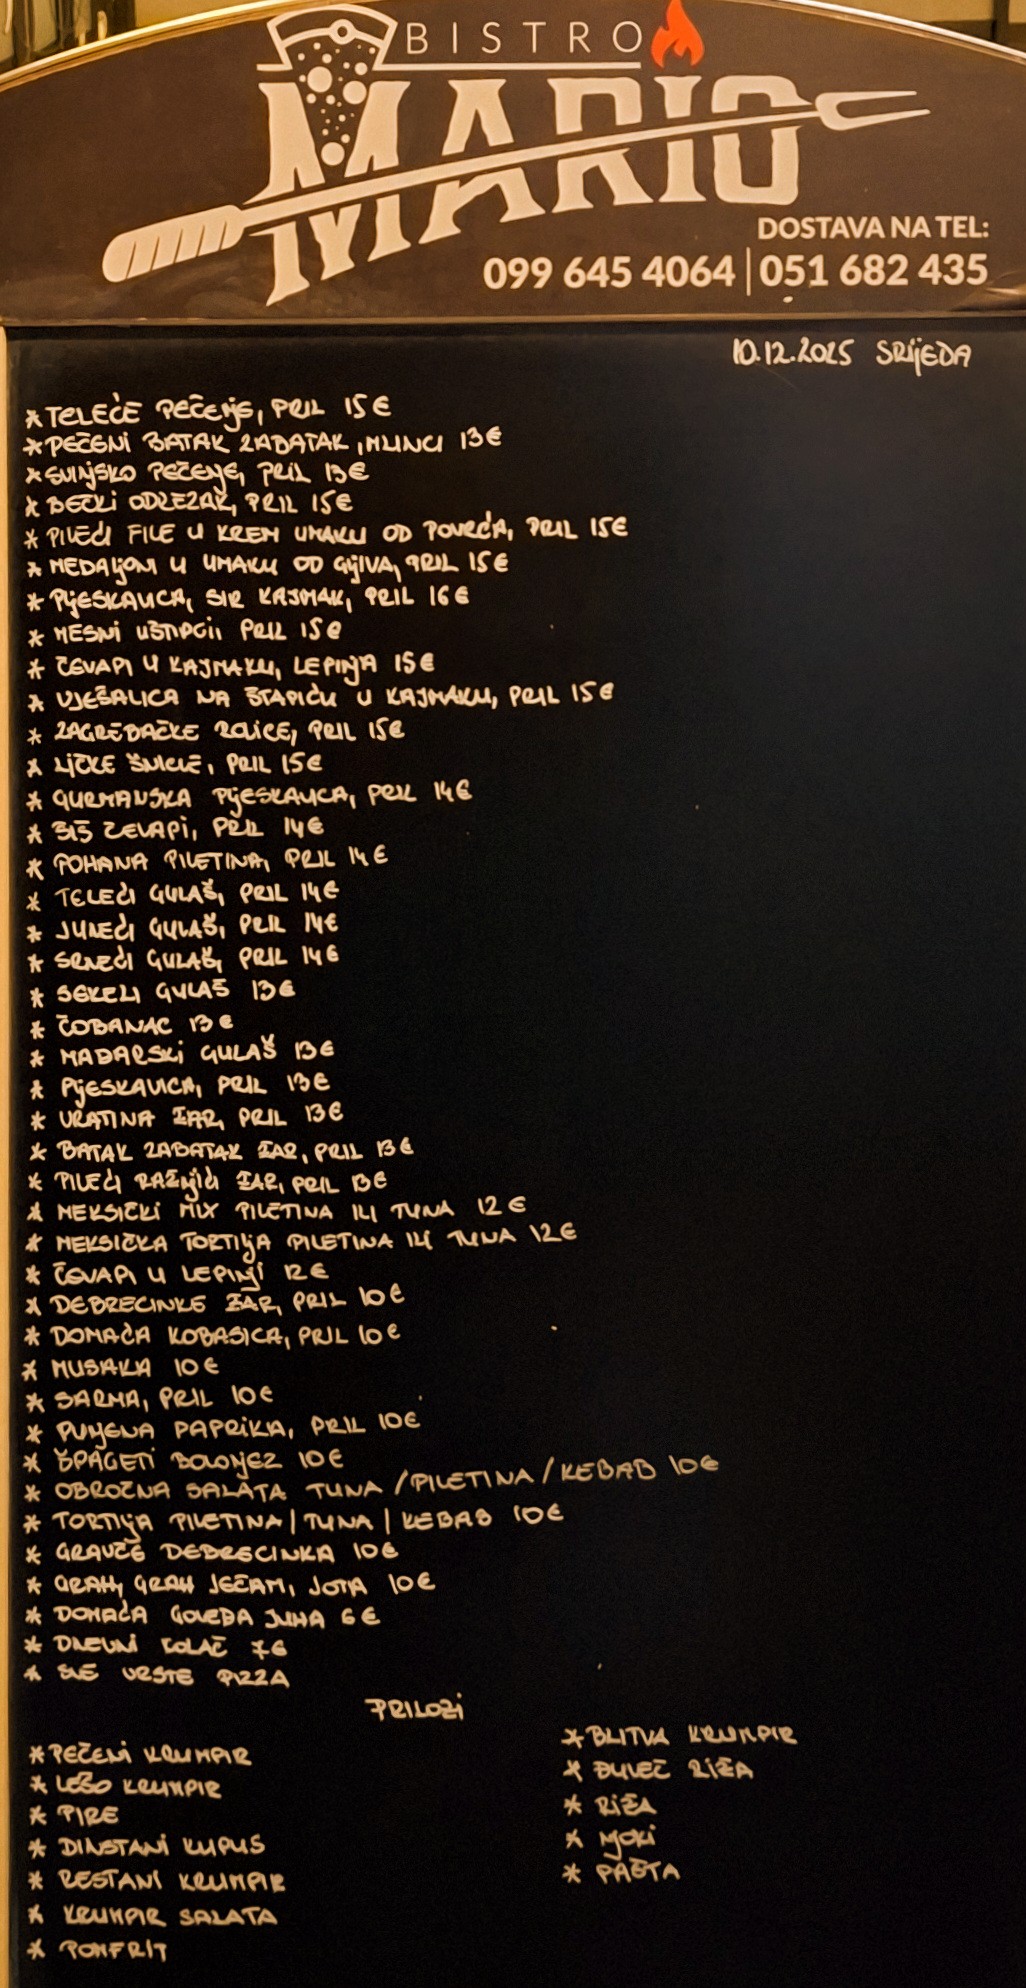 BISTRO
MARIO
DOSTAVA NA TEL:
099 645 4064 | 051 682 435
10.12.2025 SRIJEDA
* TELEĆE PEČENJE, PRIL 15€
* PEČENI BATAK ZABATAK, MLINCI 13€
* SVINJSKO PEČENJE, PRIL 13€
* BEČKI ODREZAK, PRIL 15€
* PILEĆI FILE U KREM UMAKU OD POVRĆA, PRIL 15€
* MEDALJONI U UMAKU OD GLJIVA, PRIL 15€
* PLJESKAVICA, SIR KAJMAK, PRIL 16€
* MESNI UŠTIPCI, PRIL 15€
* ČEVAPI U KAJMAKU, LEPINJA 15€
* VJEŠALICA NA ŠTAPIĆU U KAJMAKU, PRIL 15€
* ZAGREBAČKE ROLICE, PRIL 15€
* LIČKE ŠNICLE, PRIL 15€
* GURMANSKA PLJESKAVICA, PRIL 14€
* ŠIŠ ČEVAPI, PRIL 14€
* POHANA PILETINA, PRIL 14€
* TELEĆI GULAŠ, PRIL 14€
* JUNEĆI GULAŠ, PRIL 14€
* SRNEĆI GULAŠ, PRIL 14€
* SEKELI GULAŠ 13€
* ČOBANAC 13€
* MAĐARSKI GULAŠ 13€
* PLJESKAVICA, PRIL 13€
* VRATINA ŽAR, PRIL 13€
* BATAK ZABATAK ŽAR, PRIL 13€
* PILEĆI RAŽNJIĆI ŽAR, PRIL 13€
* MEKSIČKI MIX PILETINA ILI TUNA 12€
* MEKSIČKA TORTILJA PILETINA ILI TUNA 12€
* ČEVAPI U LEPINJI 12€
* DEBRECINKE ŽAR, PRIL 10€
* DOMAĆA KOBASICA, PRIL 10€
* MUSAKA 10€
* SARMA, PRIL 10€
* PUNJENA PAPRIKA, PRIL 10€
* ŠPAGETI BOLONJEZ 10€
* OBROČNA SALATA TUNA / PILETINA / KEBAB 10€
* TORTILJA PILETINA | TUNA | KEBAB 10€
* GRAVČE DEBRECINKA 10€
* GRAH, GRAH JEČAM, JOTA 10€
* DOMAĆA GOVEĐA JUHA 6€
* DNEVNI KOLAČ 7€
* SVE VRSTE PIZZA
PRILOZI
* PEČENI KRUMPIR
* LEŠO KRUMPIR
* PIRE
* DINSTANI KUPUS
* RESTANI KRUMPIR
* KRUMPIR SALATA
* POMFRIT
* BLITVA KRUMPIR
* ĐUVEČ RIŽA
* RIŽA
* NJOKI
* PAŠTA